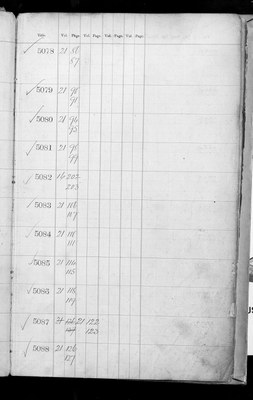 Vol. Page. Vol. Page. Vol. Page. Vol. Page.
5078 21 58
57
5079 21 98
5080 21 96
95
5081 21 98
99
5082 16 202
203
5083 21 118
117
5084 21 111
5085 21 116
115
5086 21 118
119
5087 21 122
123
5088 21 126
127